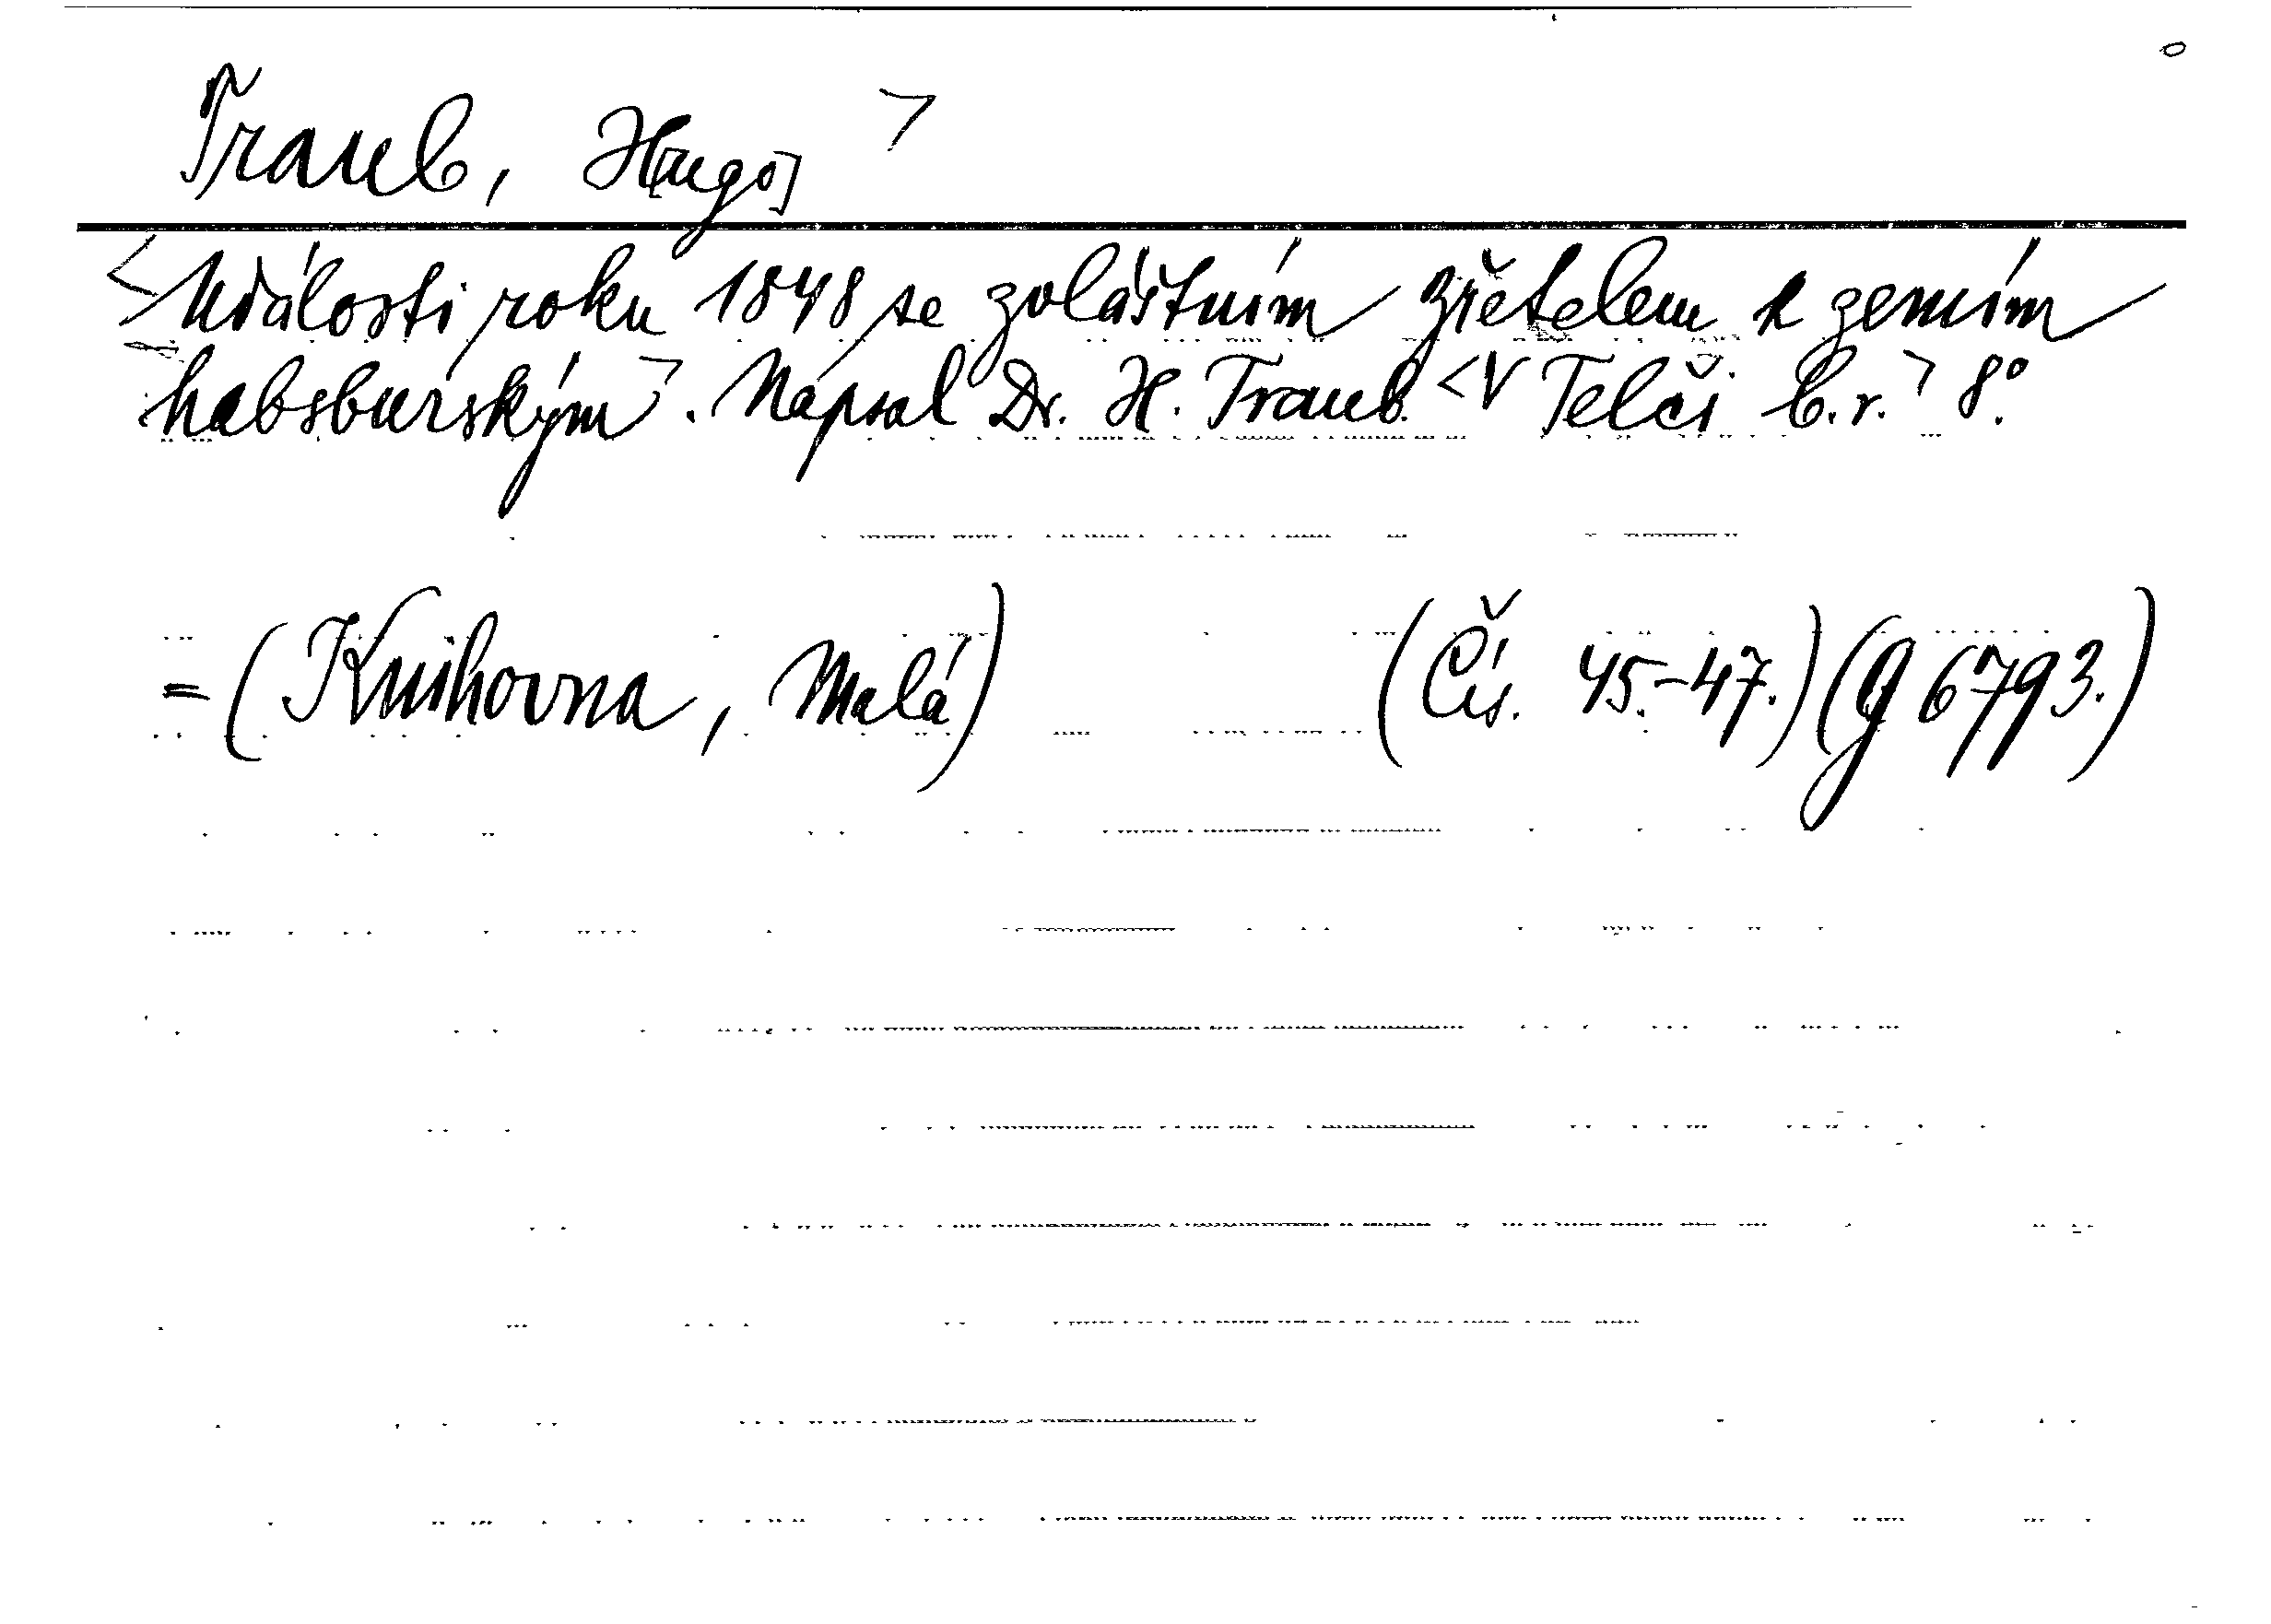 Traub, H[ugo] >
<Události roku 1848 se zvláštním zřetelem k zemím
habsburským>. Napsal Dr. H. Traub. <V Telči b.r.> 8°.
=(Knihovna, Malá) (Čís. 45.-47.) (G 6793.)